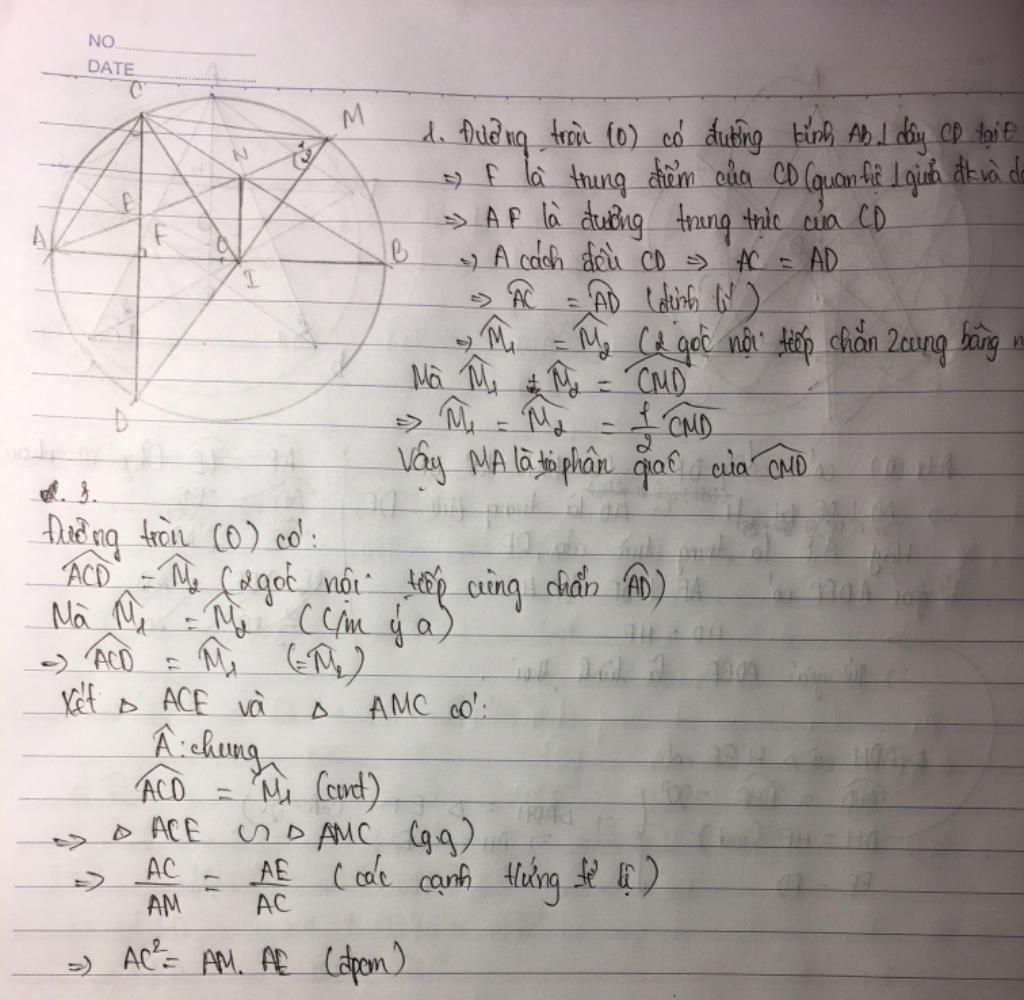 NO
DATE
C
M
N
2
A
E
F
O
I
B
D
1. Đường tròn (O) có đường kính AB ⊥ dây CD tại F
=> F là trung điểm của CD (quan hệ ⊥ giữa đk và d
=> AF là đường trung trực của CD
=> A cách đều CD => AC = AD
=> AC = AD (định lí)
=> M̂₁ = M̂₂ (2 góc nội tiếp chắn 2 cung bằng n
Mà M̂₁ + M̂₂ = CMD
=> M̂₁ = M̂₂ = 1/2 CMD
Vậy MA là phân giác của CMD
3.
Đường tròn (O) có:
ACD = M̂₂ (2 góc nội tiếp cùng chắn AD)
Mà M̂₁ = M̂₂ (c/m ý a)
=> ACD = M̂₁ (=M̂₂)
Xét △ ACE và △ AMC có:
Â: chung
ACD = M̂₁ (cmt)
=> △ ACE ∽ △ AMC (g.g)
=> AC/AM = AE/AC (các cạnh tứng tỉ lệ)
=> AC² = AM. AE (đpcm)